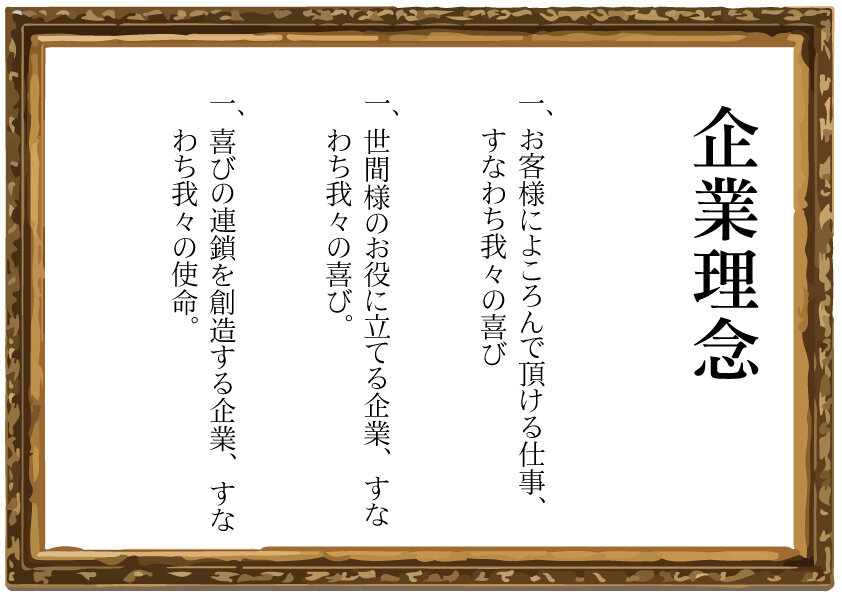 企業理念
一、お客様によころんで頂ける仕事、
すなわち我々の喜び
一、世間様のお役に立てる企業、すな
わち我々の喜び。
一、喜びの連鎖を創造する企業、すな
わち我々の使命。